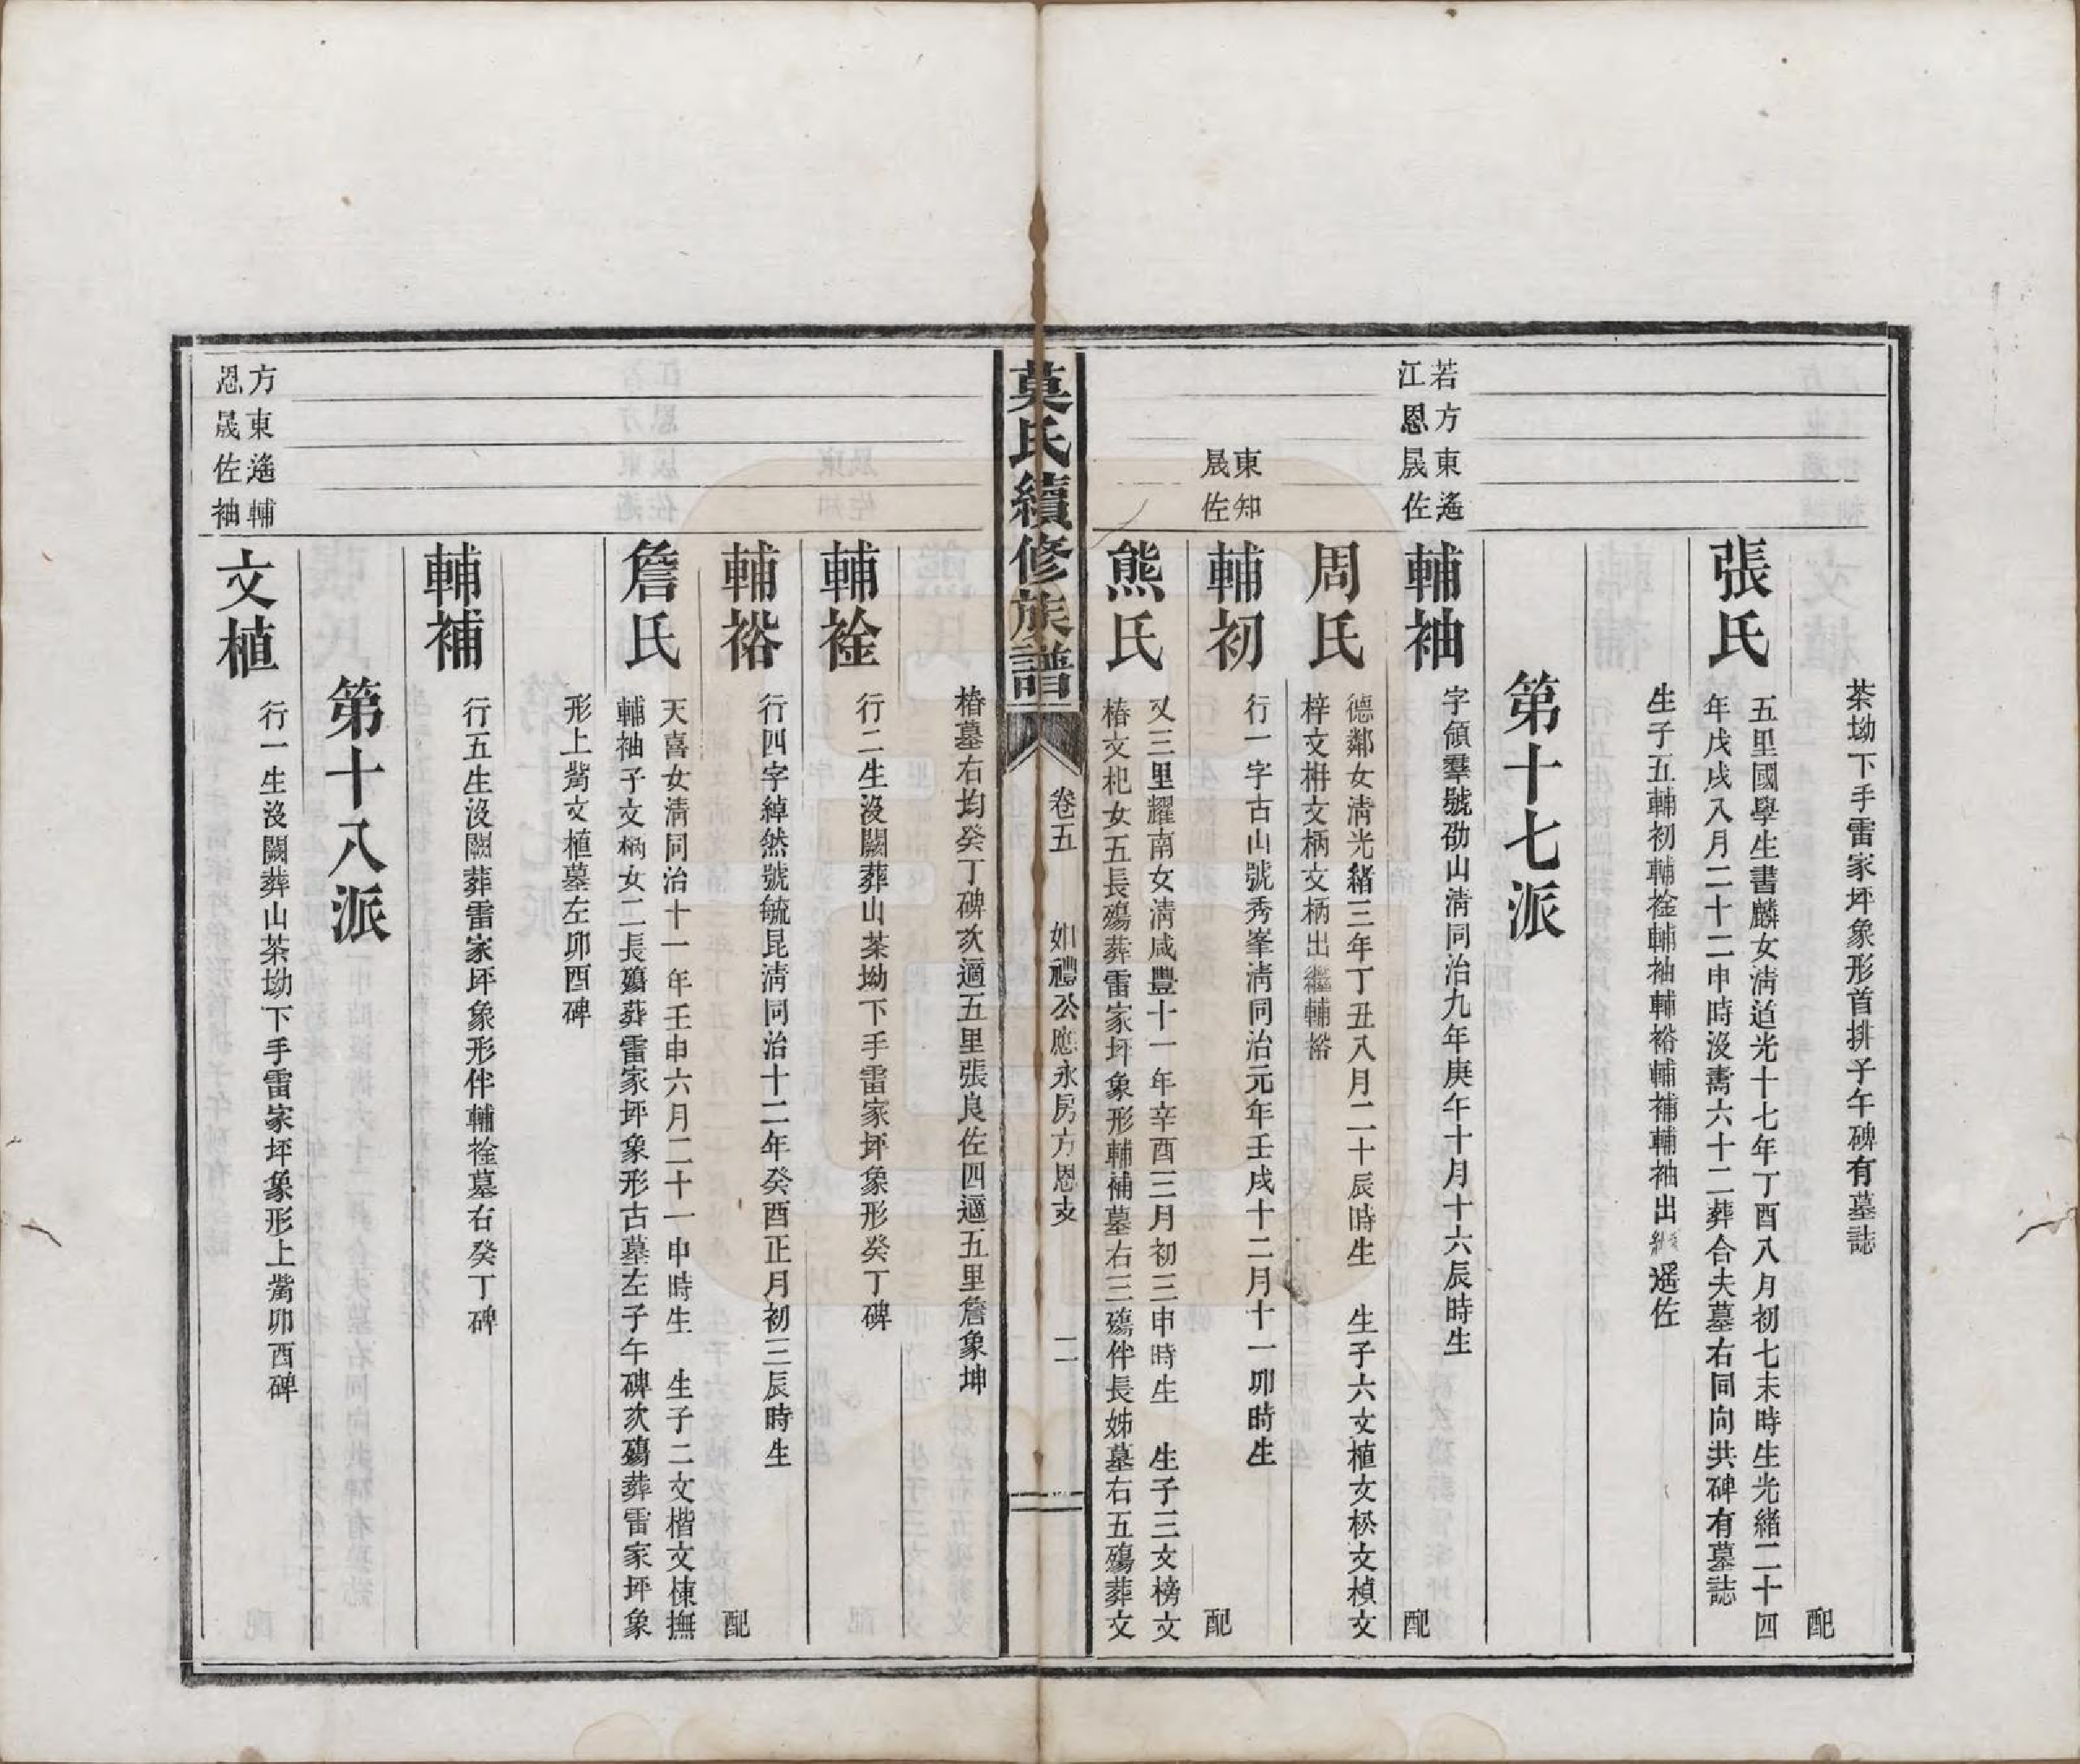 茶坳下手雷家坪象形首排子午碑有墓誌
配
張氏
五里國學生書麟女淸道光十七年丁酉八月初七未時生光緒二十四
年戊戌八月二十二申時沒壽六十二葬合夫墓右同向共碑有墓誌
生子五輔初輔衿輔袖輔裕輔補輔袖出繼遥佐
第十七派
若方東遙
江恩晟佐
輔袖
字領羣號砀山淸同治九年庚午十月十六辰時生
配
周氏
德鄰女淸光緒三年丁丑八月二十辰時生 生子六文植文松文楨文
梓文枏文柄文柄出繼輔裕
東知
晟佐
輔初
行一字古山號秀峯淸同治元年壬戌十二月十一卯時生
配
熊氏
又三里耀南女淸咸豐十一年辛酉三月初三申時生 生子三文榜文
椿文杞女五長殤葬雷家坪象形輔補墓右三殤伴長姊墓右五殤葬文
莫氏續修族譜
卷五 如禮公應永房方恩支 二
椿墓右均癸丁碑次適五里張良佐四適五里詹象坤
輔衿
行二生沒闕葬山茶坳下手雷家坪象形癸丁碑
輔裕
行四字綽然號毓昆淸同治十二年癸酉正月初三辰時生
配
詹氏
天喜女淸同治十一年壬申六月二十一申時生 生子二文楷文棟撫
輔袖子文柄女二長殤葬雷家坪象形古墓左子午碑次殤葬雷家坪象
形上嘴文植墓左卯酉碑
輔補
行五生沒闕葬雷家坪象形伴輔衿墓右癸丁碑
第十八派
方東遙輔
恩晟佐袖
文植
行一生沒闕葬山茶坳下手雷家坪象形上嘴卯酉碑